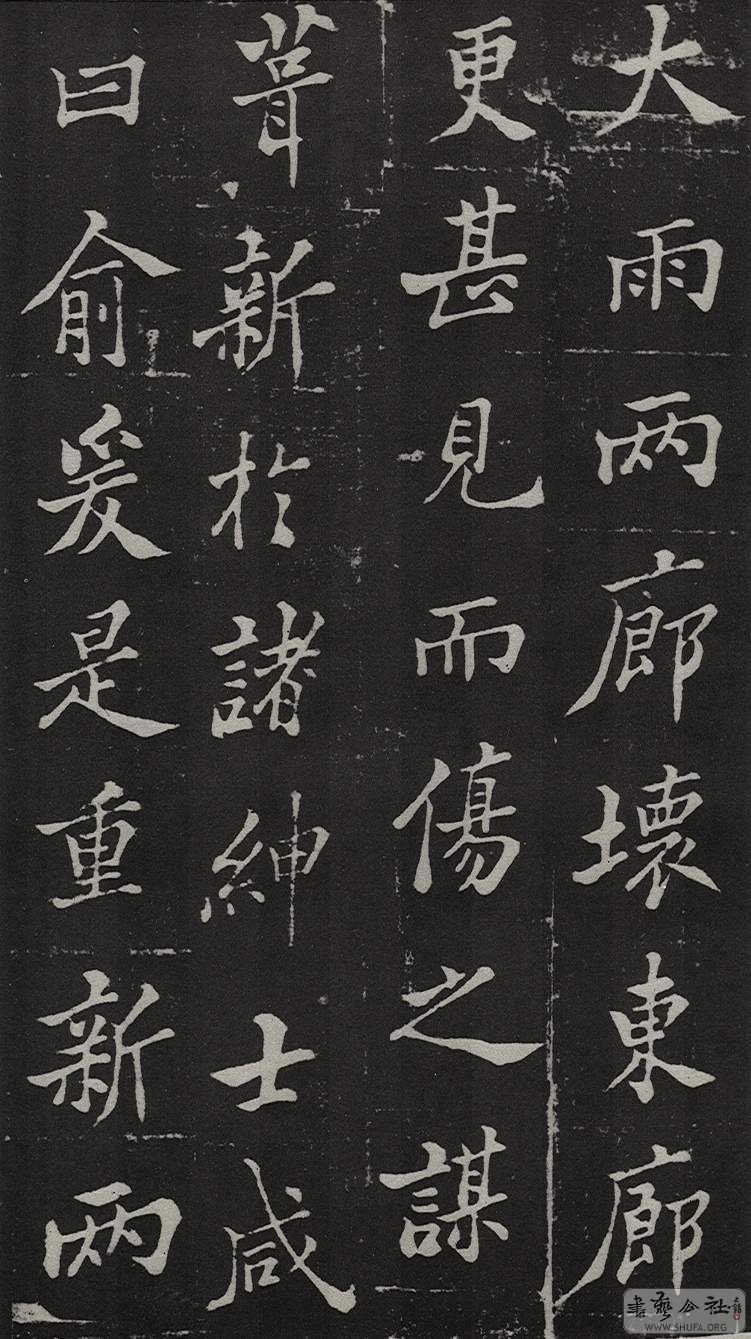 大雨兩廊壞東廊
更甚見而傷之謀
葺新於諸紳士咸
曰俞爰是重新兩
書藝公社
WWW.SHUFA.ORG